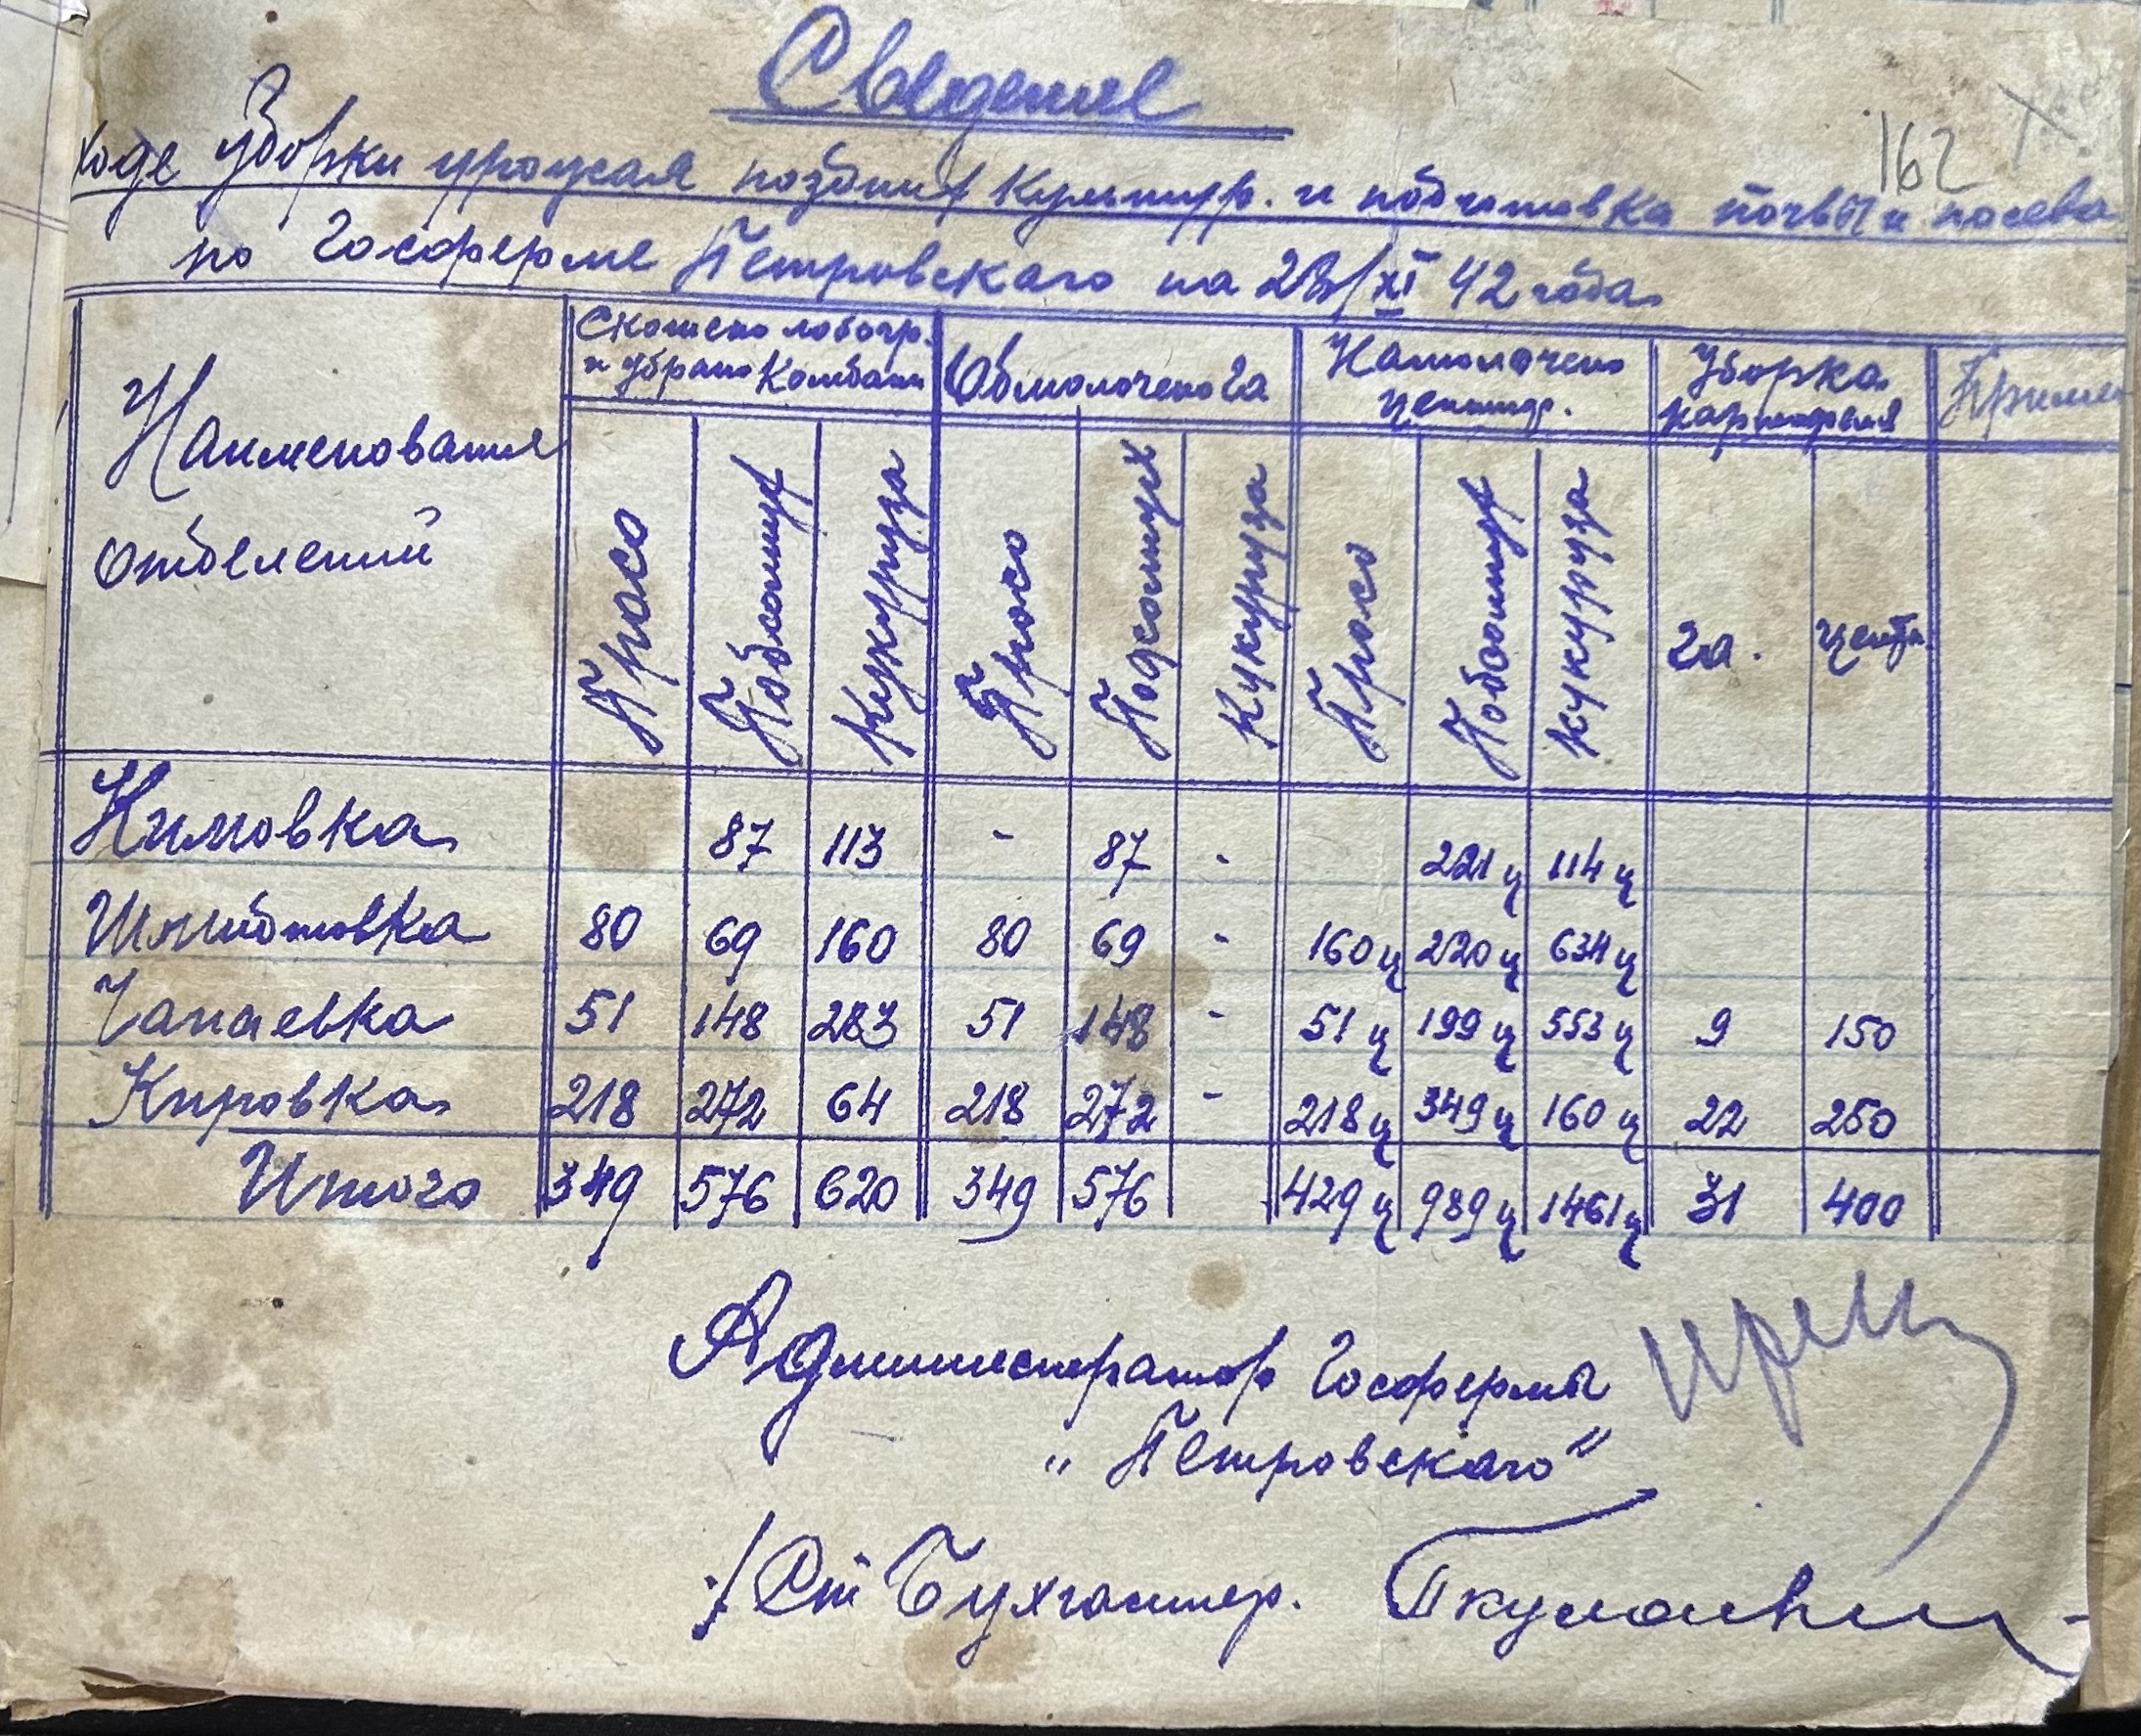 Сведение
162
ходе уборки урожая поздних культур. и подготовка почвы и посева
по Госферме Петровского на 28/XI 42 года
Наименования отделений
Скошено лобогр. и убрано комбайн
Обмолочено га
Намолочено центнер.
Уборка картофеля
Примеч
Просо Подсолнух Кукуруза Просо Подсолнух Кукуруза Просо Подсолнух Кукуруза га. центн
Кимовка 87 113 - 87 - 221 ц 114 ц
Шмидтовка 80 69 160 80 69 - 160 ц 220 ц 634 ц
Чапаевка 51 148 283 51 148 - 51 ц 199 ц 553 ц 9 150
Кировка 218 272 64 218 272 - 218 ц 349 ц 160 ц 22 250
Итого 349 576 620 349 576 429 ц 989 ц 1461 ц 31 400
Администратор Госфермы
„Петровскаго"
/Ст Бухгалтер.